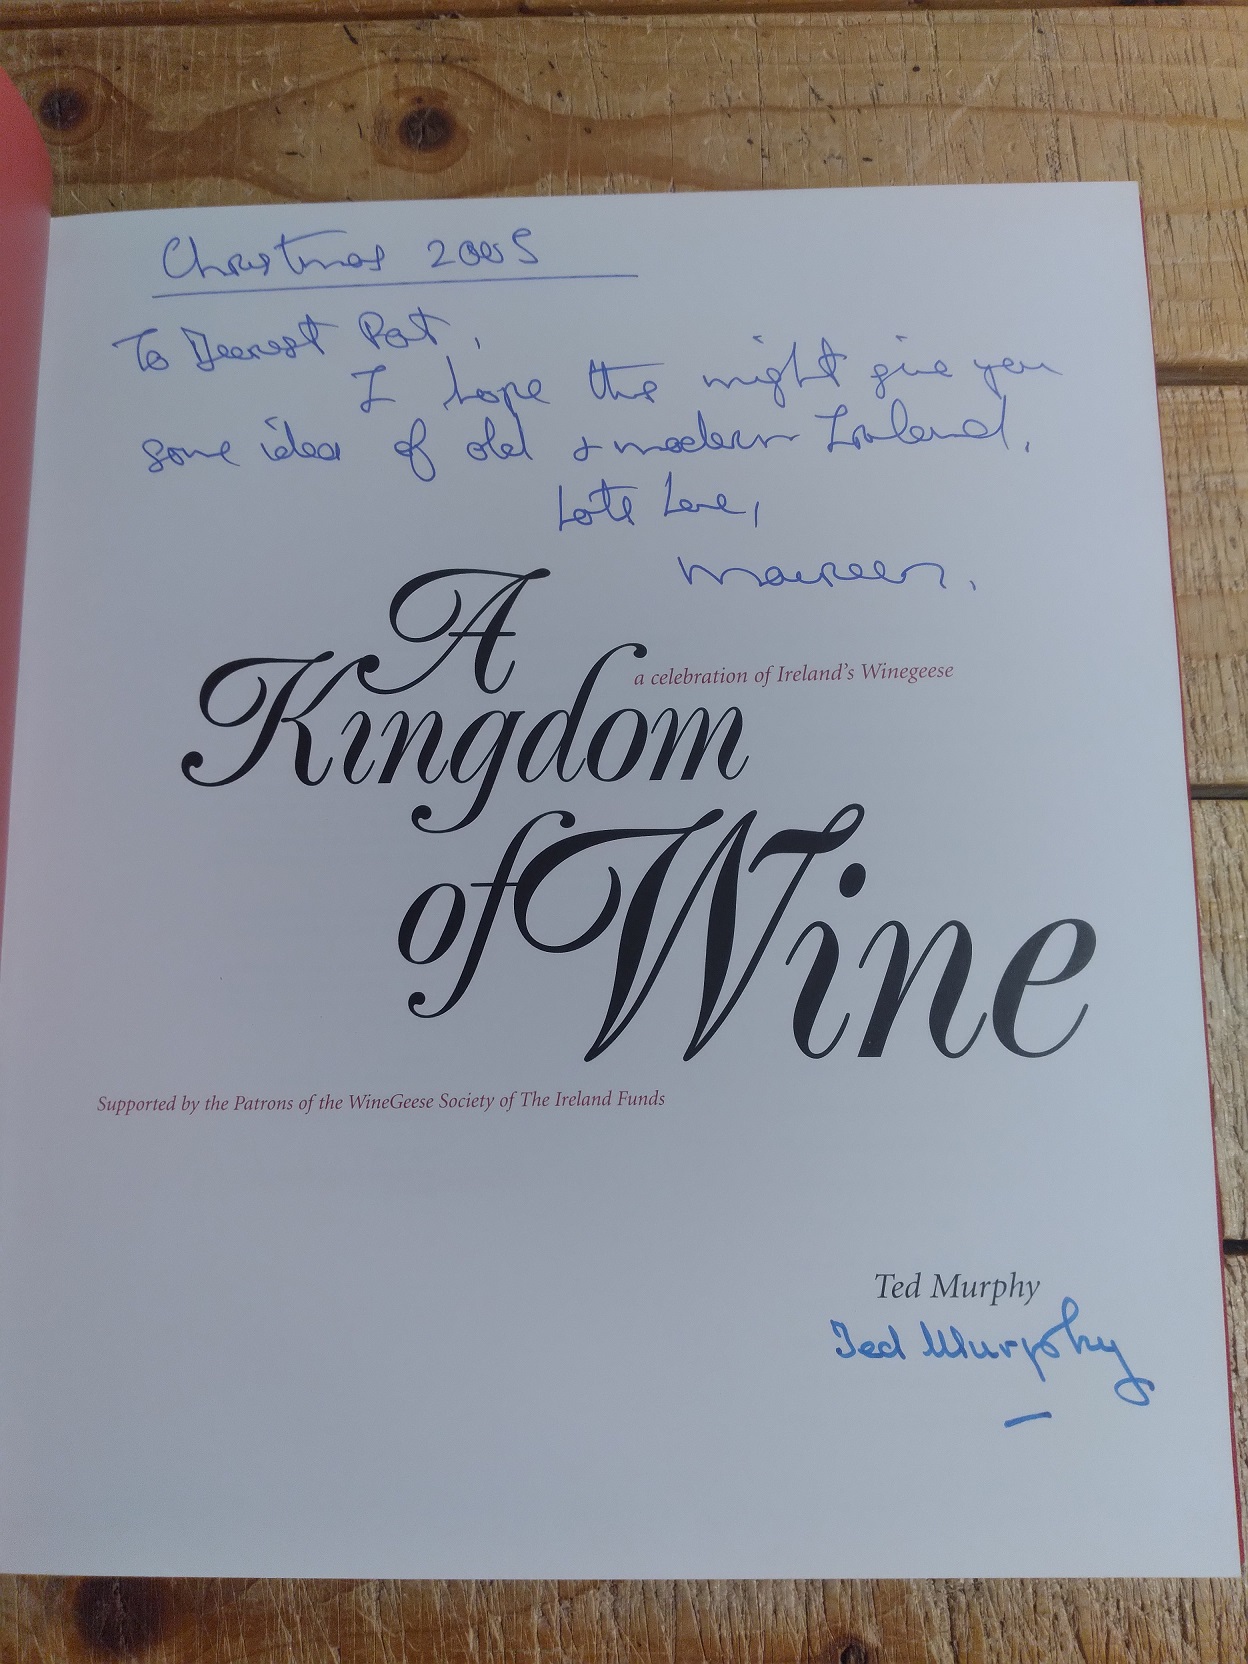 Christmas 2005
To Dearest Pat,
I hope this might give you
some idea of old & modern Ireland.
Lots Love,
Maureen.
A
Kingdom
a celebration of Ireland's Winegeese
of Wine
Supported by the Patrons of the WineGeese Society of The Ireland Funds
Ted Murphy
Ted Murphy